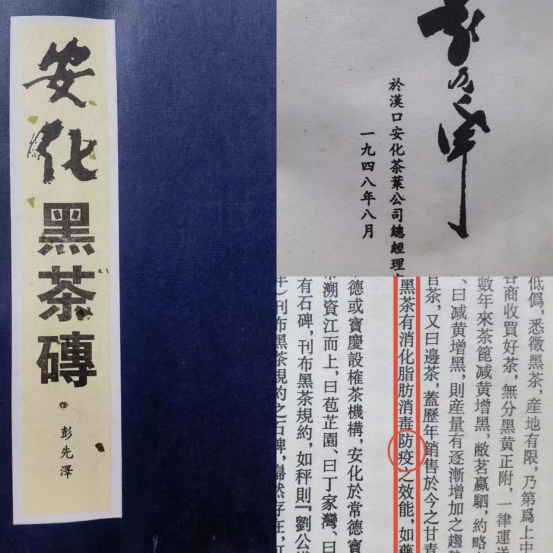 安化黑茶磚
彭先澤
於漢口安化茶葉公司總經理
一九四八年八月
低偽，悉徵黑茶，產地有限，乃第爲上中
各商收買好茶，無分黑黄正附，一律運送
數年來茶篦減黄增黑，敝茗贏駟，約略
、曰減黄增黑，則産量有逐漸增加之趨
官茶，又曰邊茶，蓋歷年銷售於今之甘青
黑茶有消化脂肪消毒防疫之效能，如藥
常德或寶慶設榷茶機構，安化於常德寶
溯資江而上，曰苞芷園、曰丁家灣、曰
有石碑，刊布黑茶規約，如秤則『劉公
年）刊布黑茶規約之石碑，巋然存在，